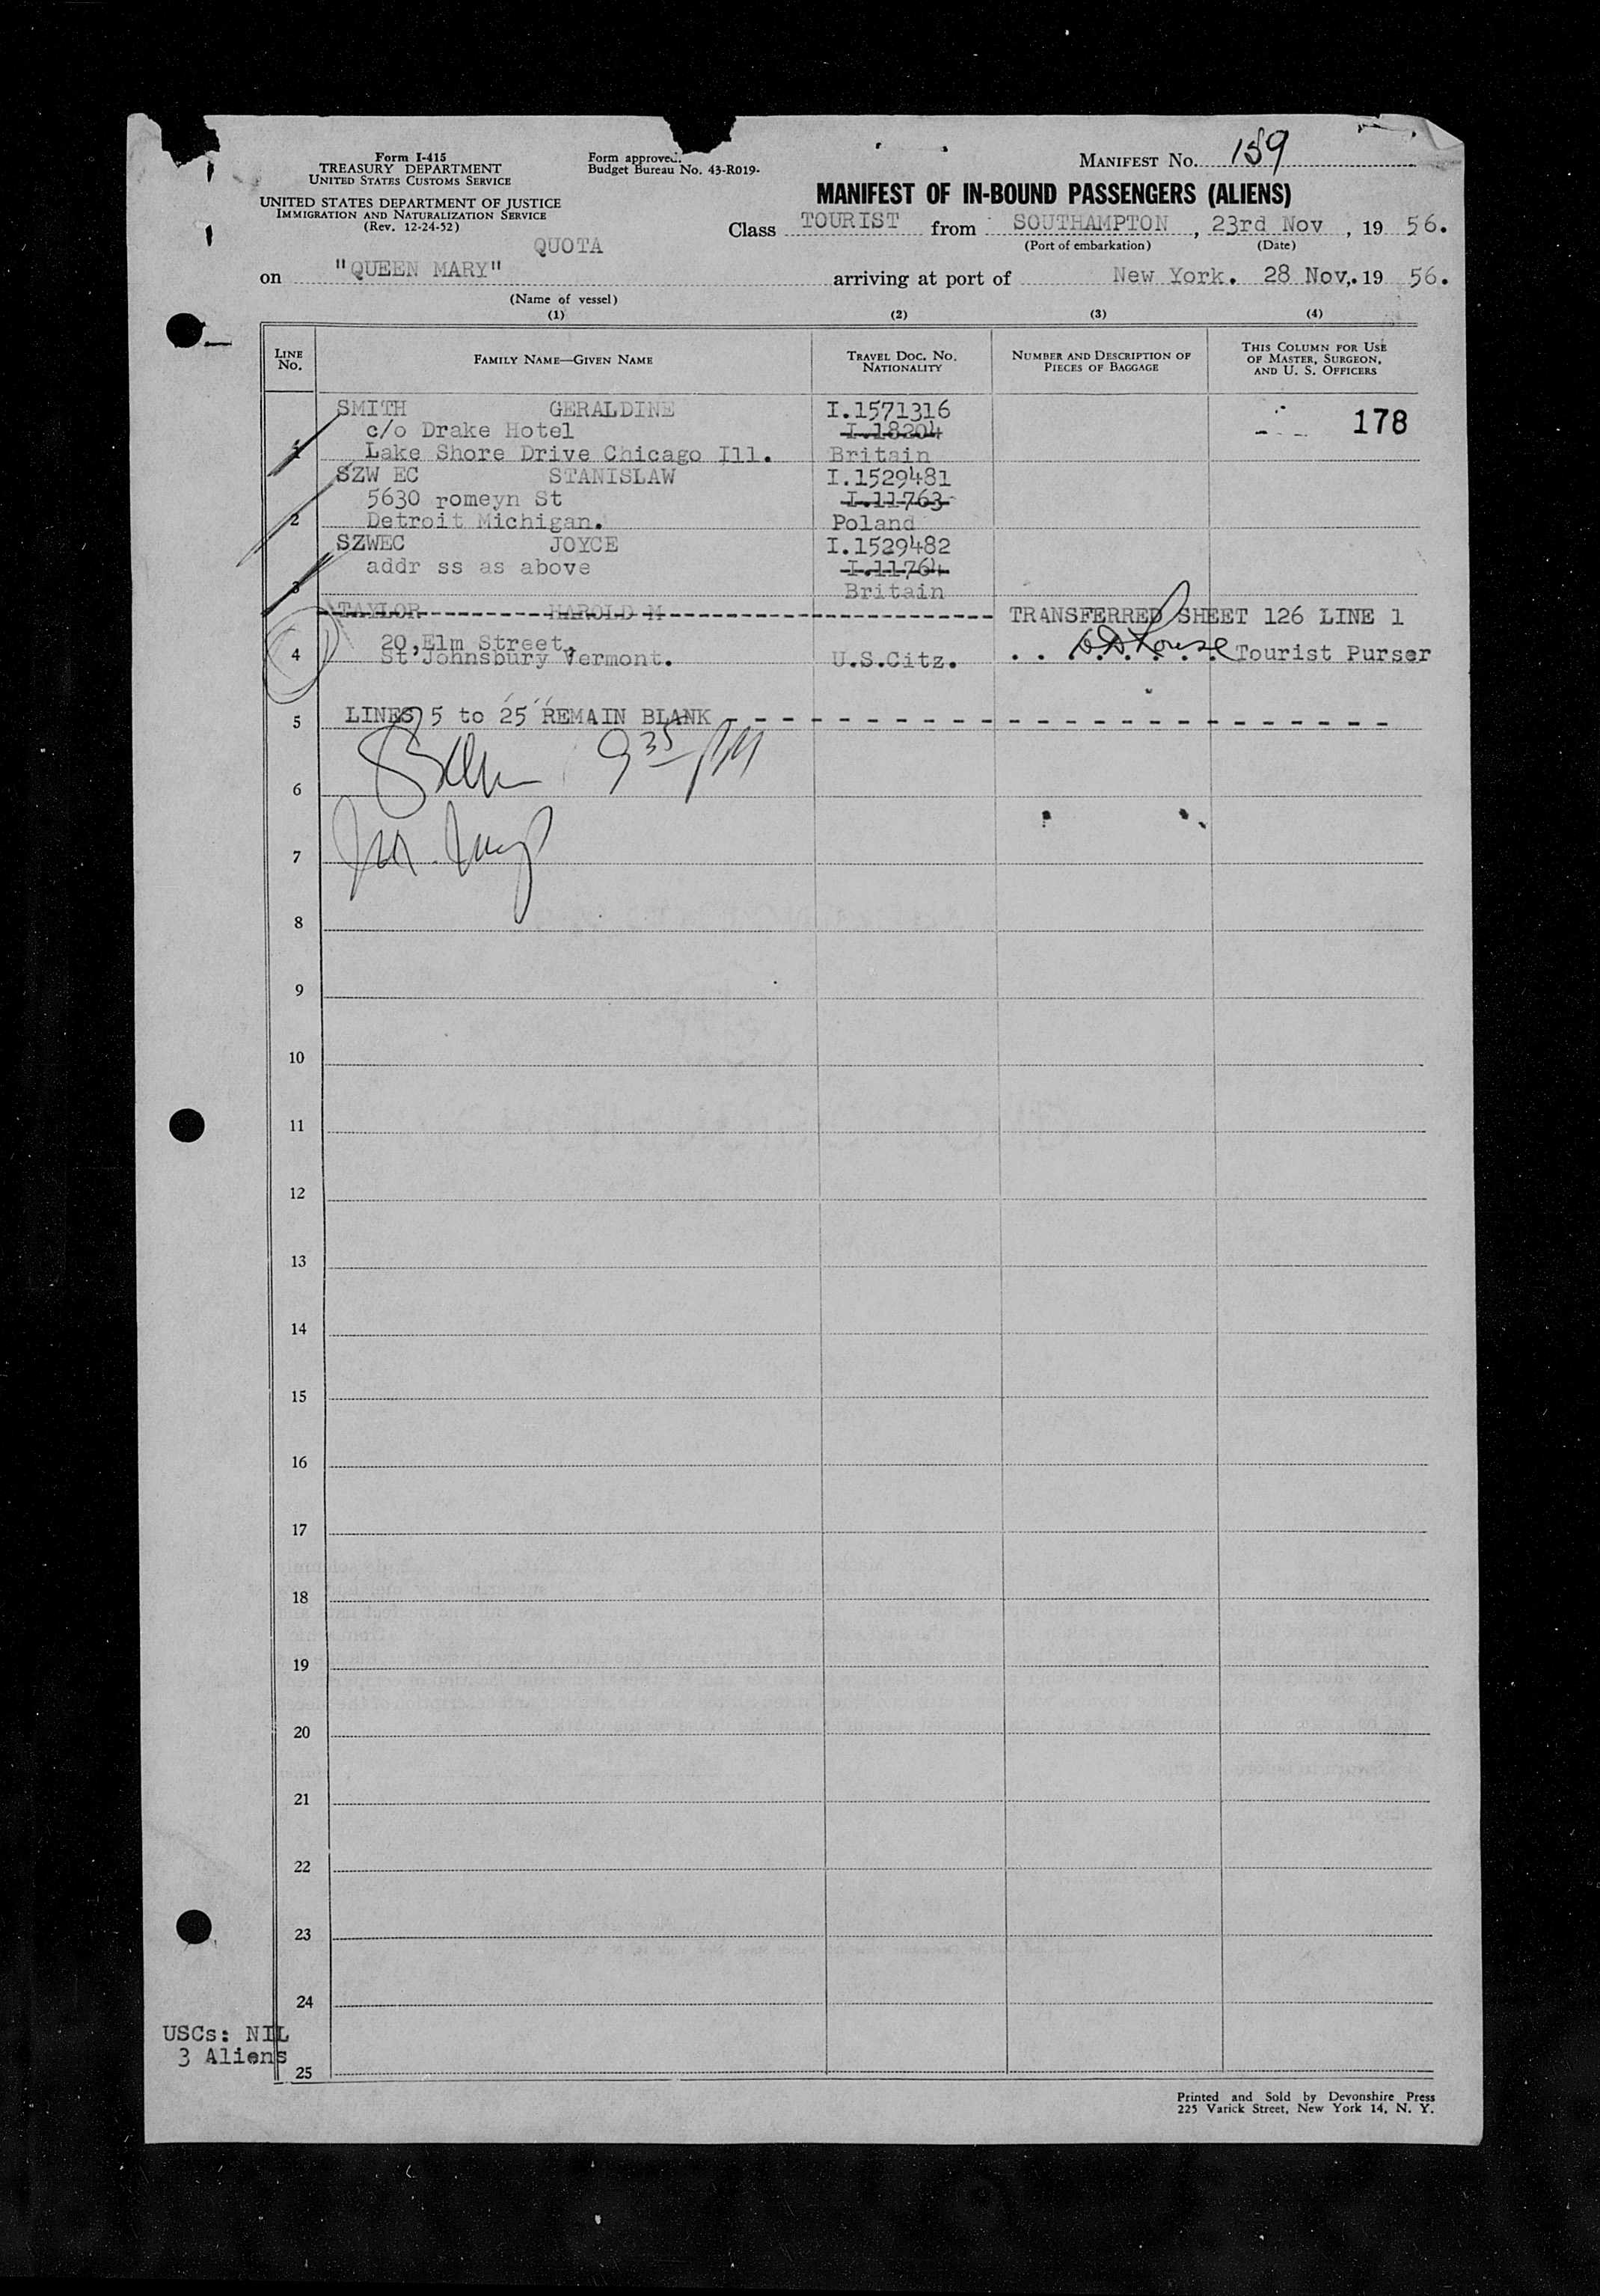 Form I-415
TREASURY DEPARTMENT
UNITED STATES CUSTOMS SERVICE
UNITED STATES DEPARTMENT OF JUSTICE
IMMIGRATION AND NATURALIZATION SERVICE
(Rev. 12-24-52)
Form approved.
Budget Bureau No. 43-R019-
MANIFEST No. 159
MANIFEST OF IN-BOUND PASSENGERS (ALIENS)
Class TOURIST from SOUTHAMPTON, 23rd Nov, 19 56.
(Port of embarkation) (Date)
QUOTA
on "QUEEN MARY" arriving at port of New York. 28 Nov,.19 56.
(Name of vessel)
(1) (2) (3) (4)
LINE No. FAMILY NAME—GIVEN NAME TRAVEL DOC. No. NATIONALITY NUMBER AND DESCRIPTION OF PIECES OF BAGGAGE THIS COLUMN FOR USE OF MASTER, SURGEON, AND U. S. OFFICERS
SMITH GERALDINE I.1571316 178
c/o Drake Hotel I.18204
1 Lake Shore Drive Chicago Ill. Britain
SZW EC STANISLAW I.1529481
5630 romeyn St I.11763
2 Detroit Michigan. Poland
SZWEC JOYCE I.1529482
addr ss as above I.11764
3 Britain
TAYLOR HAROLD M TRANSFERRED SHEET 126 LINE 1
20,Elm Street,
4 St Johnsbury Vermont. U.S.Citz. Tourist Purser
5 LINES 5 to 25 REMAIN BLANK
9 35 PM
6
7
8
9
10
11
12
13
14
15
16
17
18
19
20
21
22
23
24
USCs: NIL
3 Aliens
25
Printed and Sold by Devonshire Press
225 Varick Street, New York 14, N. Y.